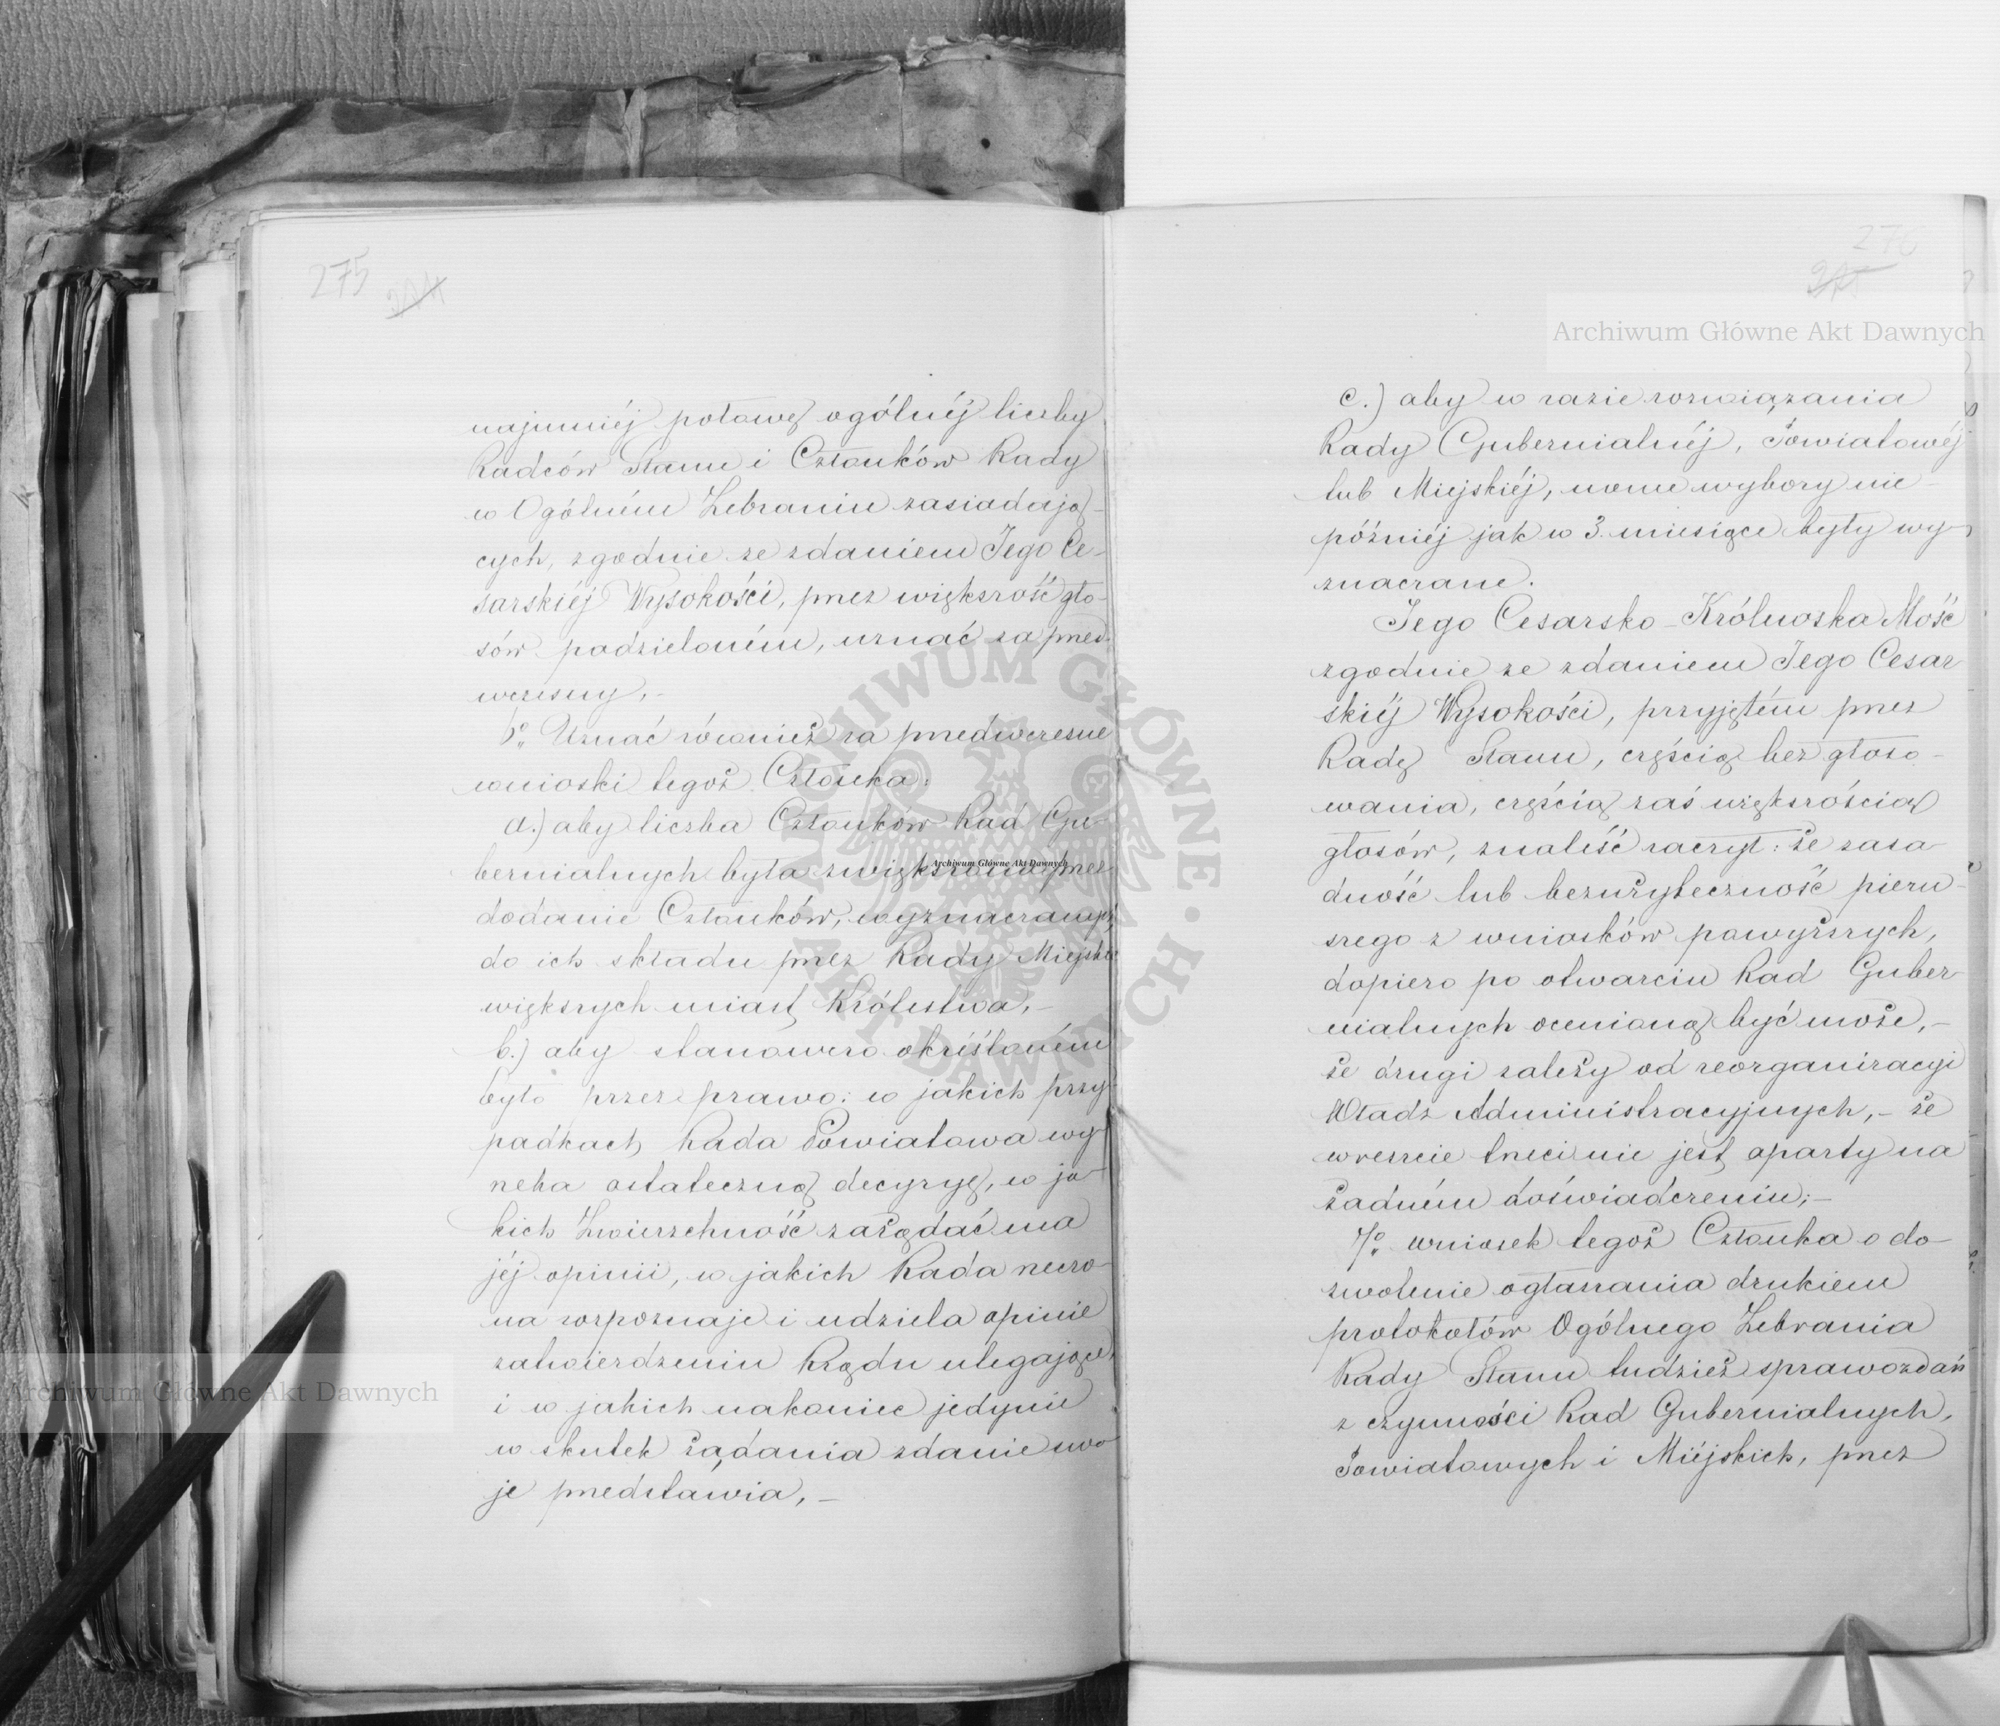 275
najmniéj połowę ogólnéj liczby
Radców Stanu i Członków Rady
w Ogólném Zebraniu zasiadają-
cych, zgodnie ze zdaniem Jego Ce-
sarskiéj Wysokości, przez większość gło-
sów podzieloném, uznać za przed-
wczesny,-
6º Uznać również za przedwczesne
wnioski tegoż Członka:
a.) aby liczba Członków Rad Gu-
bernialnych była zwiększona przez
dodanie Członków, wyznaczanych
do ich składu przez Rady Miejskie
większych miast Królestwa,-
b.) aby stanowczo określoném
było przez prawo: w jakich przy-
padkach Rada Powiatowa wy-
rzeka ostateczną decyzyę, w ja-
kich Zwierzchność zażądać ma
jéj opinii, w jakich Rada rzeczo-
na rozpoznaje i udziela opinie
zatwierdzeniu Rządu ulegające,
i w jakich nakoniec jedynie
w skutek żądania zdanie swo-
je przedstawia,-
276
c.) aby w razie rozwiązania
Rady Gubernialnéj, Powiatowéj
lub Miejskiéj, nowe wybory nie-
późniéj jak w 3. miesiące były wy-
znaczane.
Jego Cesarsko-Królewska Mość
zgodnie ze zdaniem Jego Cesar-
skiéj Wysokości, przyjętém przez
Radę Stanu, częścią bez głoso-
wania, częścią zaś większością
głosów, znaleść raczył: że zasa-
dność lub bezużyteczność pierw-
szego z wniosków powyższych,
dopiero po otwarciu Rad Guber-
nialnych ocenioną być może,-
że drugi zależy od reorganizacyi
Władz Administracyjnych,- że
wreszcie trzeci nie jest oparty na
żadném doświadczeniu;-
7º wniosek tegoż Członka o do-
zwolenie ogłaszania drukiem
protokołów Ogólnego Zebrania
Rady Stanu tudzież sprawozdań
z czynności Rad Gubernialnych,
Powiatowych i Miejskich, przez
Archiwum Główne Akt Dawnych
Archiwum Główne Akt Dawnych
Archiwum Główne Akt Dawnych
ARCHIWUM GŁÓWNE AKT DAWNYCH